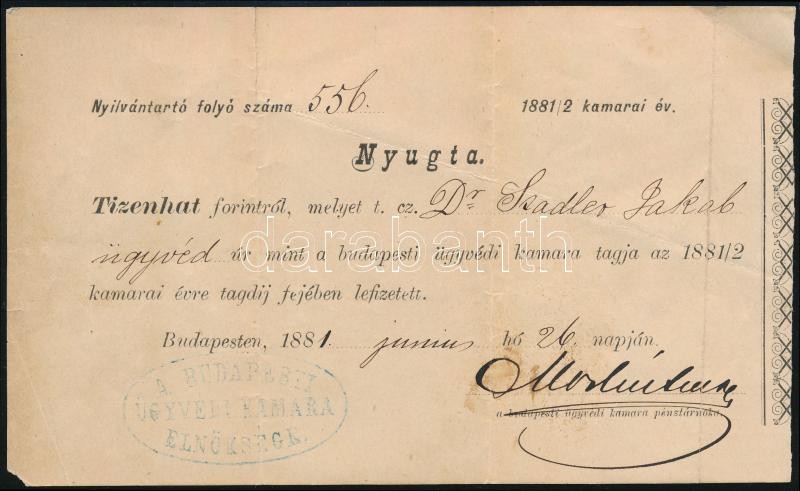 Nyilvántartó folyó száma 556. 1881/2 kamarai év.
Nyugta.
Tizenhat forintról, melyet t. cz. Dr Stadler Jakab
ügyvéd úr mint a budapesti ügyvédi kamara tagja az 1881/2
kamarai évre tagdij fejében lefizetett.
Budapesten, 1881. junius hó 26. napján.
a budapesti ügyvédi kamara pénztárnoka.
A BUDAPESTI
ÜGYVÉDI KAMARA
ELNÖKSÉGE.
darabanth